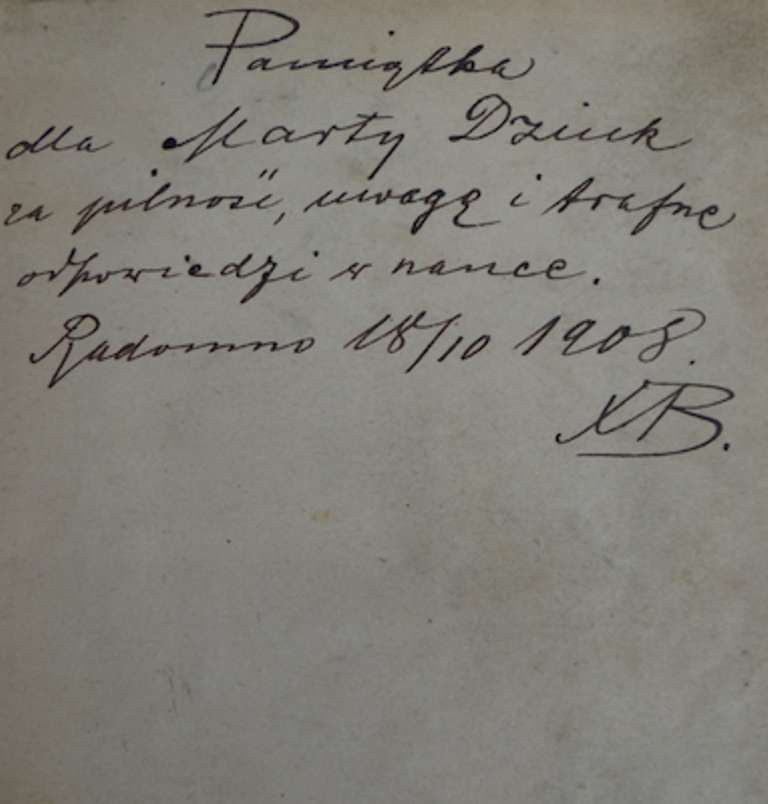 Pamiątka
dla Marty Dziuk
za pilność, uwagę i trafne
odpowiedzi w nauce.
Radomno 18/10 1908.
XB.